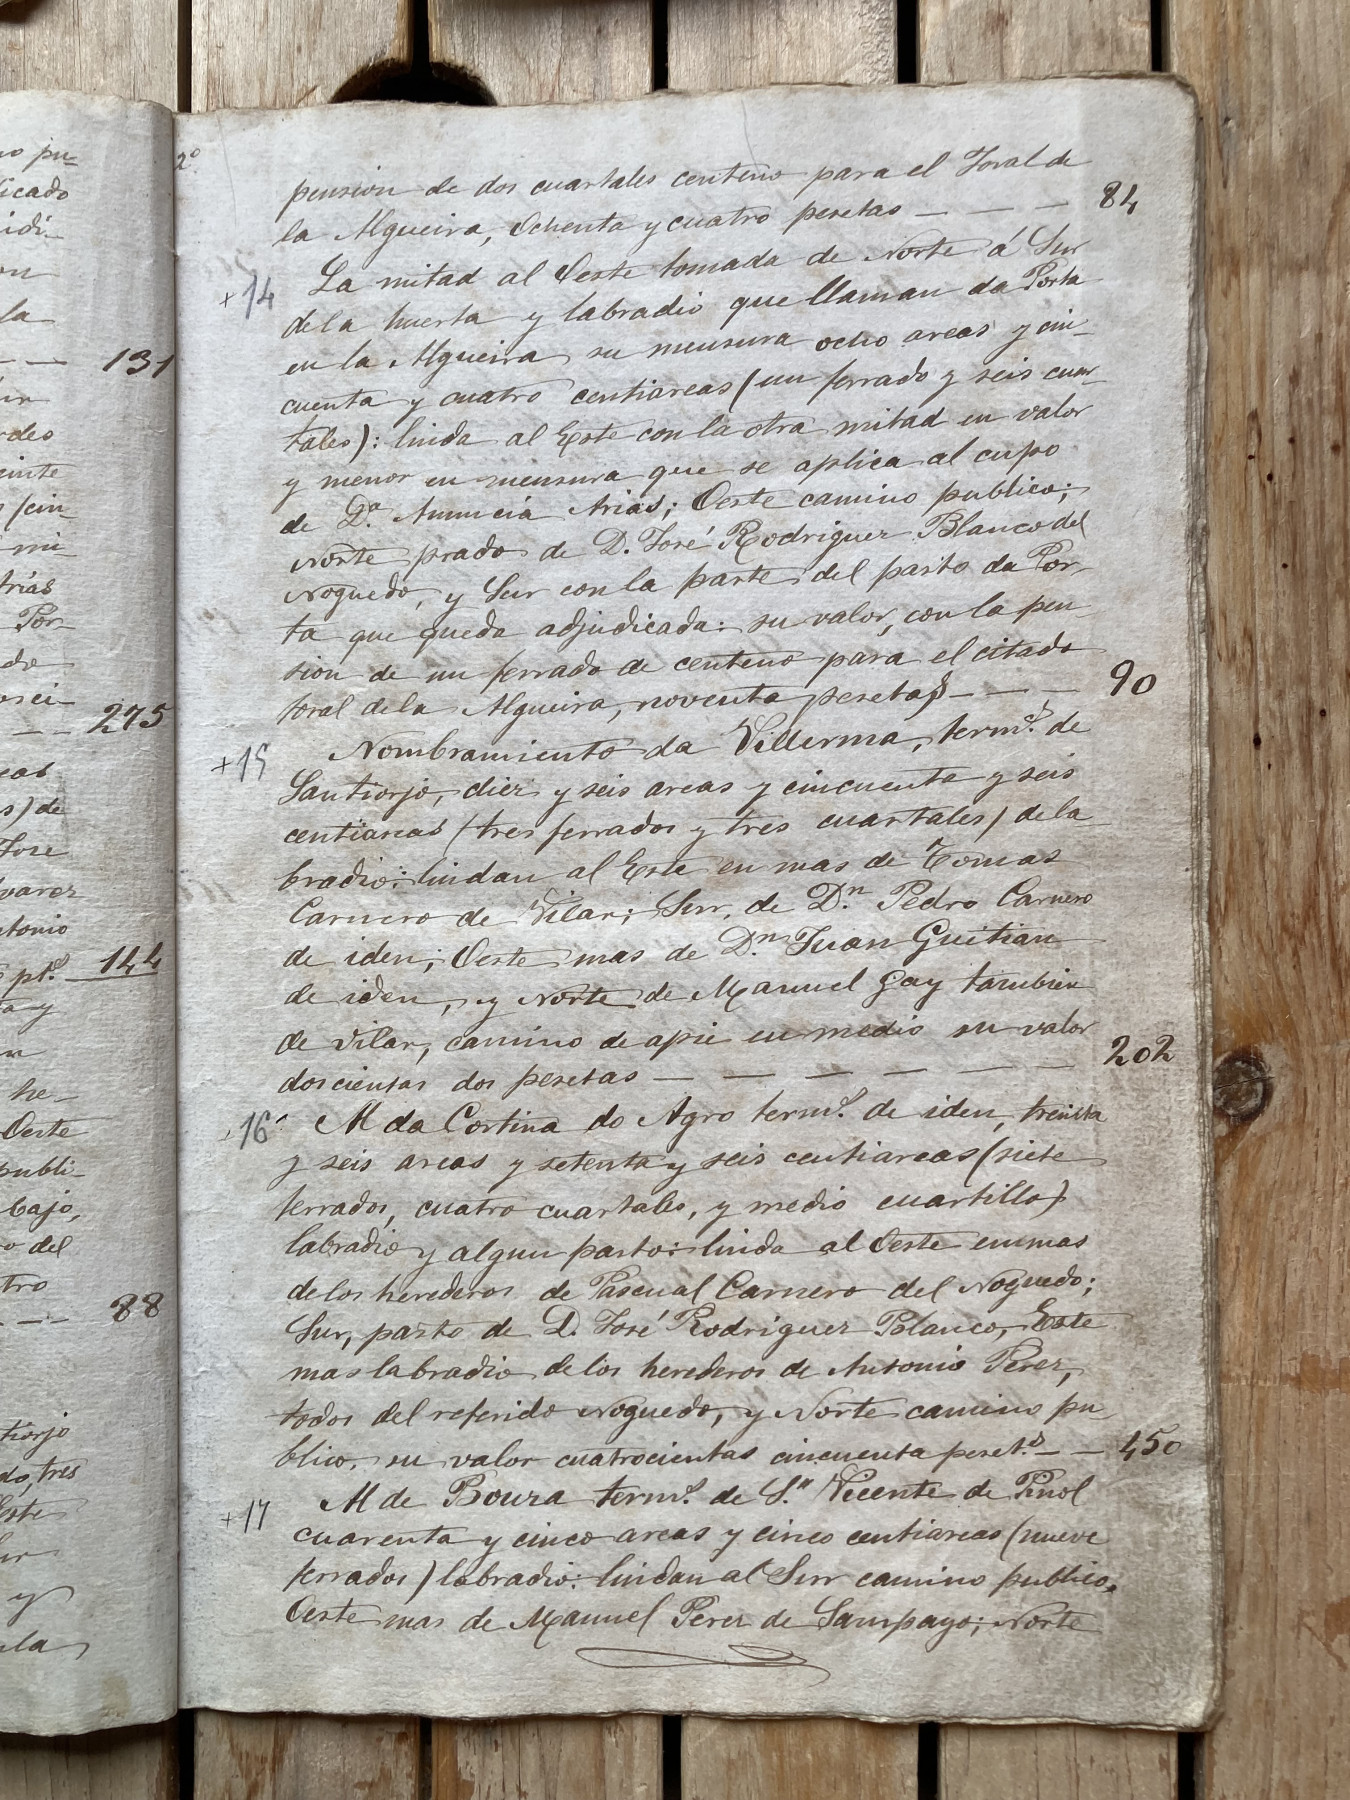 o pu-
icado
idi-
on
la
— — 131
ir
rdeo
einte
s (cin-
mi-
trias
Por-
do
osei-
— — 275
eas
s) de
Jose
lvarez
ntonio
pt.s 144
ta y
n
he-
Oeste
publi-
bajo,
o del
tro
— — 88
tiorjo
do, tres
Este
ur
y
ula
2º
pension de dos cuartales centeno para el Foral de
la Algueira, Ochenta y cuatro pesetas — — — 84
+14 La mitad al Oeste tomada de Norte á Sur
de la huerta y labradio que llaman da Porta
en la Algueira su mensura ocho areas y cin-
cuenta y cuatro centiareas (un ferrado y seis cuar-
tales): linda al Este con la otra mitad en valor
y menor en mensura que se aplica al cupo
de D.ª Anuncia Arias; Oeste camino publico;
Norte prado de D. José Rodriguez Blanco del
Noguedo, y Sur con la parte del pasto da Por-
ta que queda adjudicada: su valor, con la pen-
sion de un ferrado de centeno para el citado
foral de la Algueira, noventa pesetas — — — 90
+15 Nombramiento da Villerma, term.º de
Santiorjo, diez y seis areas y cincuenta y seis
centiareas (tres ferrados y tres cuartales) de la
bradio: lindan al Este en mas de Tomas
Carnero de Vilar; Sur, de D.n Pedro Carnero
de iden; Oeste mas de D.n Juan Guitian
de iden, y Norte de Manuel Gay tambien
de Vilar, camino de apie en medio su valor
doscientas dos pesetas — — — — — — 202
+16 Al da Cortina do Agro term.º de iden, treinta
y seis areas y setenta y seis centiareas (siete
ferrados, cuatro cuartales, y medio cuartillo)
labradio y algun pasto: linda al Oeste en mas
de los herederos de Pascual Carnero del Noguedo;
Sur, pasto de D. José Rodriguez Blanco, Este
mas labradio de los herederos de Antonio Perez,
todos del referido Noguedo, y Norte camino pu-
blico, su valor cuatrocientas cincuenta peset.s — — 450
+17 Al de Bouza term.º de S.n Vicente de Pinol
cuarenta y cinco areas y cinco centiareas (nueve
ferrados) labradio: lindan al Sur camino publico,
Oeste mas de Manuel Perez de Sampayo; Norte